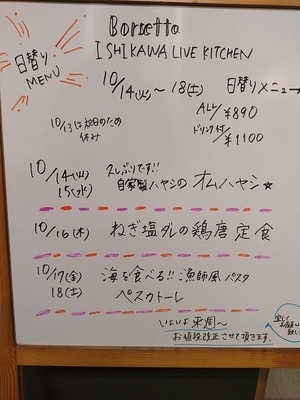 Borsetta
ISHIKAWA LIVE KITCHEN
日替り
MENU
10/14(火)～18(土) 日替りメニュー
ALL/¥890
ドリンク付/¥1100
10/13は祝日のため
休み
10/14(火)
15(水)
久しぶりです!!
自家製ハヤシの オムハヤシ☆
10/16(木) ねぎ塩ダレの鶏唐定食
10/17(金)
18(土)
海を食べる!! 漁師風パスタ
ペスカトーレ
いよいよ来週～
お値段改正させて頂きます.
宜しく
お願い